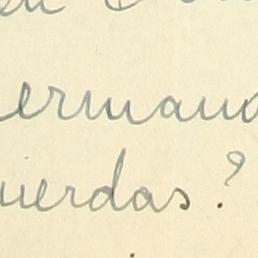 ermana
uerdas?